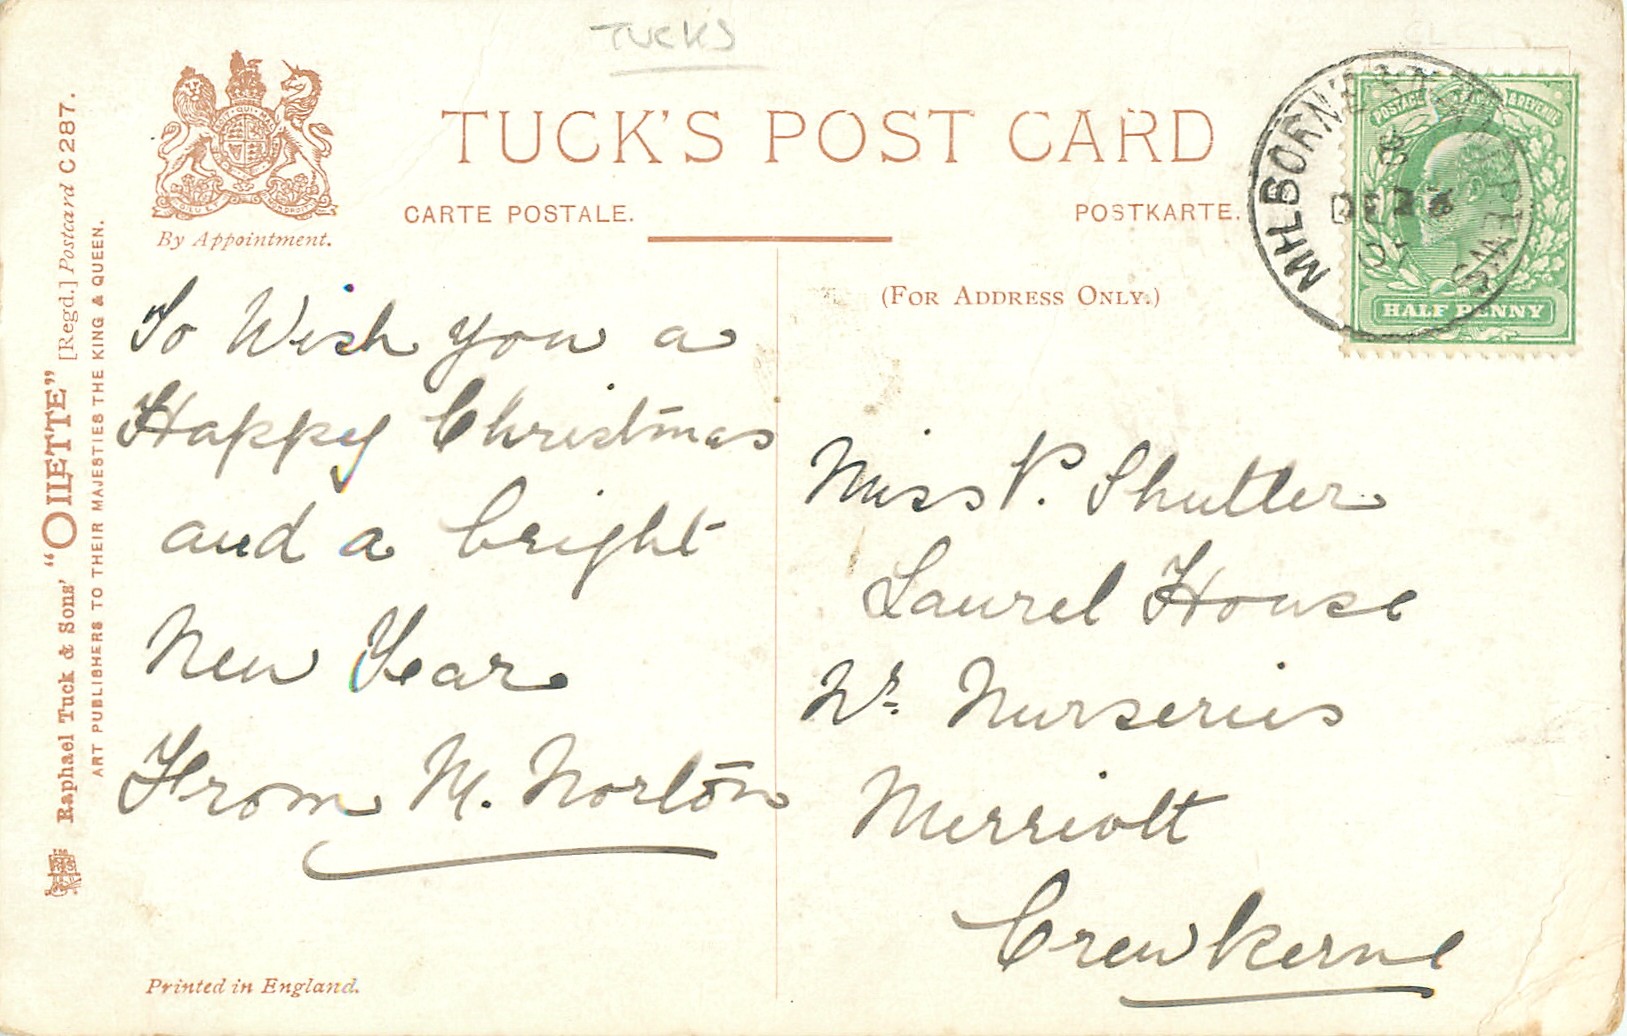 TUCKS
TUCK'S POST CARD
CARTE POSTALE.
POSTKARTE.
By Appointment.
(FOR ADDRESS ONLY.)
POSTAGE & REVENUE
HALF PENNY
DE 23
07
To Wish you a
Happy Christmas
and a bright
New Year
From M. Norton
Miss P. Shutler
Laurel House
Nr. Nurseries
Merriott
Crewkerne
Raphael Tuck & Sons' "OILETTE" [Regd.] Postcard C287.
ART PUBLISHERS TO THEIR MAJESTIES THE KING & QUEEN.
Printed in England.